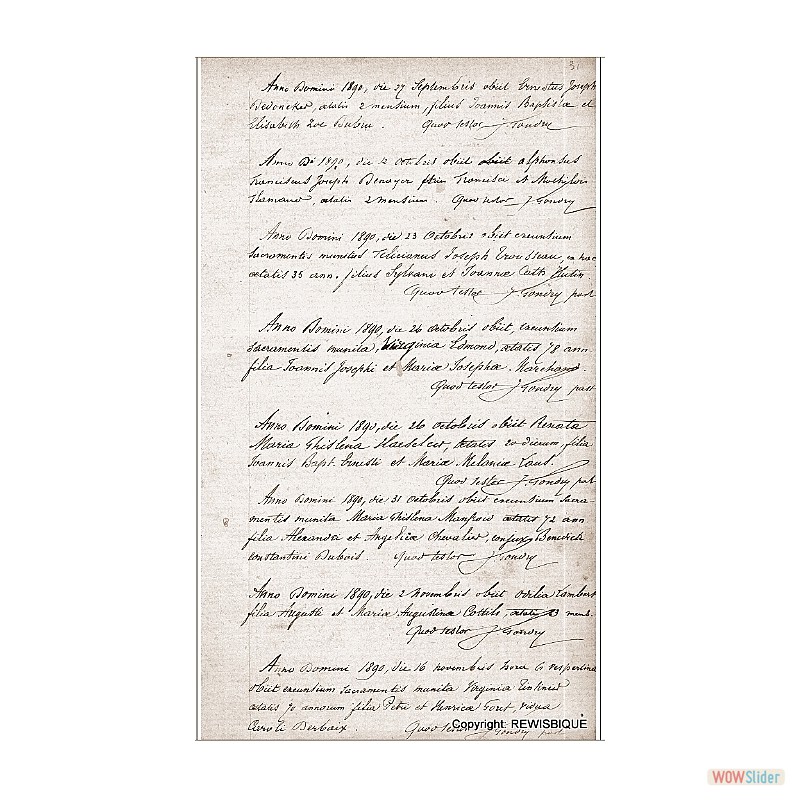 31
Anno Domini 1890, die 27 Septembris obiit Ernestus Joseph
Bedoncker, ætatis 2 mensium, filius Joannis Baptistæ et
Elisabeth Zoe Dubru. Quod testor J. Gondry
Anno Di 1890, die 4 Octobris obiit Alphonsus
Franciscus Joseph Denayer Francisci et
ætatis 2 mensium. Quod testor J Gondry
Anno Domini 1890, die 23 Octobris obiit exeuntium
sacramentis munitus Felicianus Joseph Trousseau,
ætatis 35 ann. filius Sylvani et Joannæ Cath Hutin
Quod testor J Gondry past
Anno Domini 1890, die 24 octobris obiit, exeuntium
sacramentis munita, Virginia Edmond, ætatis 78 ann
filia Joannis Josephi et Mariæ Josephæ Marchand.
Quod testor J Gondry past
Anno Domini 1890, die 26 octobris obiit Renata
Maria Ghislena Haeseleer, ætatis 20 dierum, filia
Joannis Bapt. Ernesti et Mariæ Melaniæ Laub.
Quod testor J. Gondry past
Anno Domini 1890, die 31 octobris obiit exeuntium sacra-
mentis munita Maria Ghislena Manfroid ætatis 72 ann
filia Alexandri et Angelicæ Chevalier, conjux Benedicti
Constantini Dubois. Quod testor J Gondry
Anno Domini 1890, die 2 novembris obiit Odilia Lambert
filia Augusti et Mariæ Augustinæ Cottils, ætatis 23 mens.
Quod testor J Gondry
Anno Domini 1890, die 16 novembris hora 6 vespertina
obiit exeuntium sacramentis munita Virginia
ætatis 70 annorum filia Petri et Henricæ Goret, vidua
Caroli Berbaix. Quod testor J Gondry past
Copyright: REWISBIQUE
WOWSlider